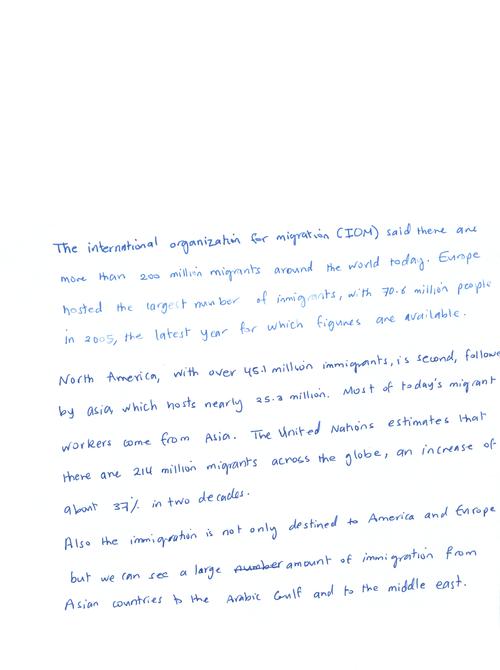 The international organization for migration (IOM) said there are
more than 200 million migrants around the world today. Europe
hosted the largest number of immigrants, with 70.6 million people
in 2005, the latest year for which figures are available.
North America, with over 45.1 million immigrants, is second, followe
by asia, which hosts nearly 25.3 million. Most of today's migrant
workers come from Asia. The United Nations estimates that
there are 214 million migrants across the globe, an increase of
about 37% in two decades.
Also the immigration is not only destined to America and Europe
but we can see a large number amount of immigration from
Asian countries to the Arabic Gulf and to the middle east.